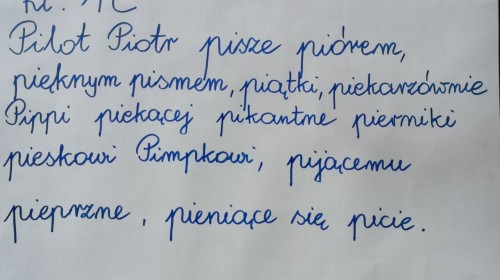 Pilot Piotr pisze piórem,
pięknym pismem, piątki, piekarzównie
Pippi piekącej pikantne pierniki
pieskowi Pimpkowi, pijącemu
pieprzne, pieniące się picie.